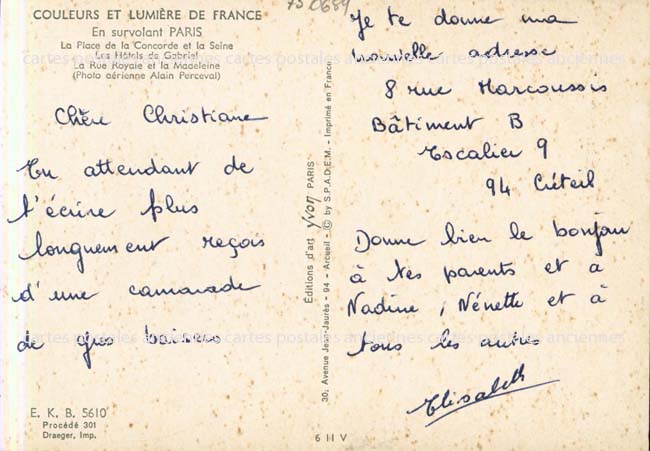 COULEURS ET LUMIÈRE DE FRANCE
En survolant PARIS
La Place de la Concorde et la Seine
Les Hôtels de Gabriel
La Rue Royale et la Madeleine
(Photo aérienne Alain Perceval)
75 0689
cartes postales anciennes cartes postales anciennes cartes postales anciennes
Chère Christiane
En attendant de
t'écrire plus
longuement reçois
d'une camarade
de gros baisers
E. K. B. 5610
Procédé 301
Draeger, Imp.
Éditions d'art yvon PARIS
30, Avenue Jean-Jaurès - 94 - Arcueil - © by S.P.A.D.E.M. - Imprimé en France
6 II V
Je te donne ma
nouvelle adresse
8 rue Marcoussis
Bâtiment B
Escalier 9
94 Créteil
Donne bien le bonjour
à tes parents et à
Nadine, Nénette et à
tous les autres
Elisabeth
cartes postales anciennes cartes postales anciennes cartes postales anciennes